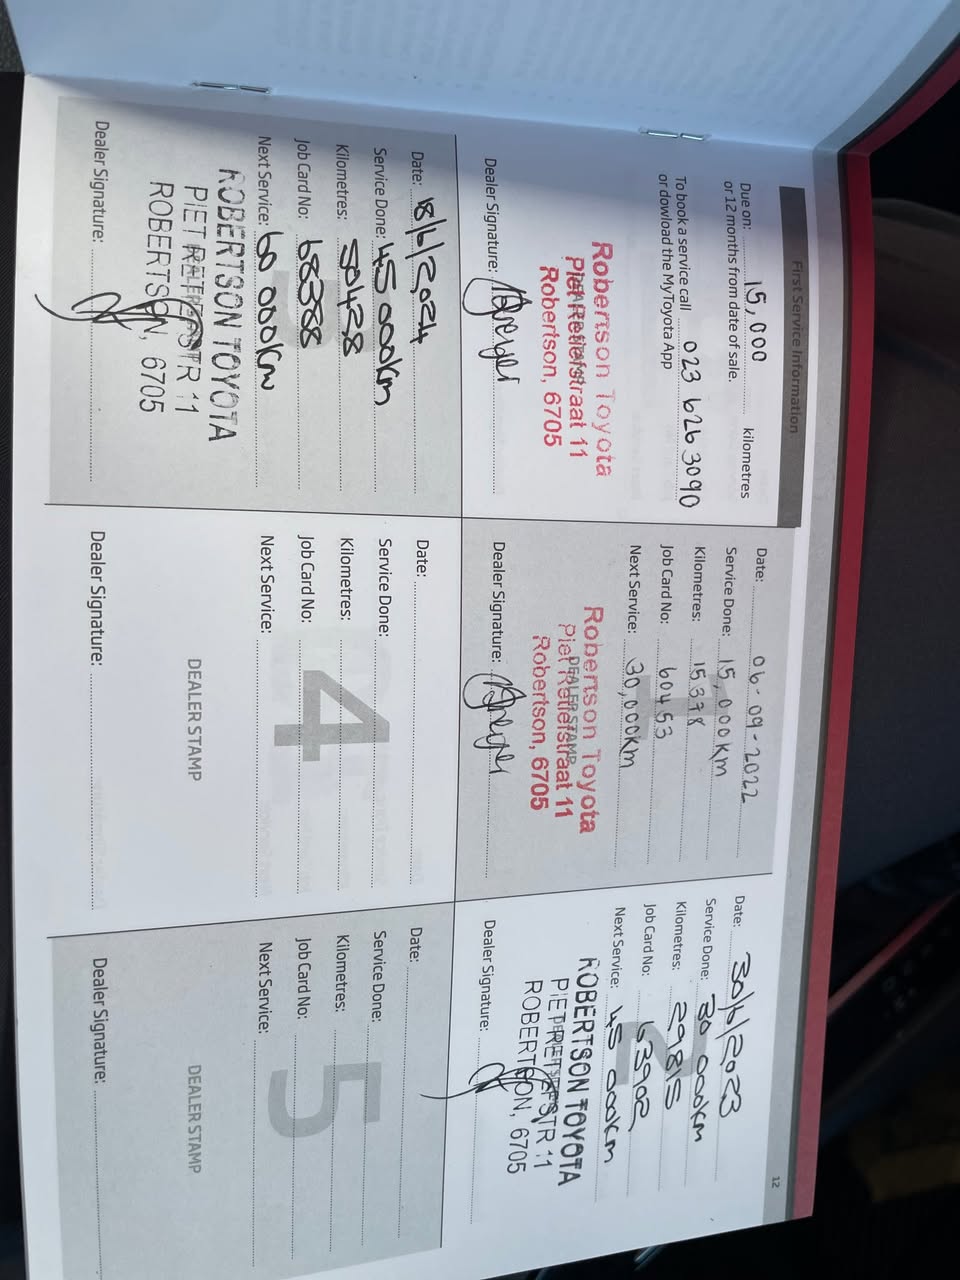 12
First Service Information
Due on: 15,000 kilometres
or 12 months from date of sale.
To book a service call 023 626 3090
or dowload the MyToyota App
Robertson Toyota
Piet Retiefstraat 11
DEALER STAMP
Robertson, 6705
Dealer Signature:
1
Date: 06-09-2022
Service Done: 15,000KM
Kilometres: 15378
Job Card No: 60453
Next Service: 30,000KM
Robertson Toyota
Piet Retiefstraat 11
DEALER STAMP
Robertson, 6705
Dealer Signature:
2
Date: 30/6/2023
Service Done: 30 000km
Kilometres: 29815
Job Card No: 63902
Next Service: 45 000km
ROBERTSON TOYOTA
PIET RETIEFSTR 11
ROBERTSON, 6705
Dealer Signature:
3
Date: 18/6/2024
Service Done: 45 000km
Kilometres: 50428
Job Card No: 68388
Next Service: 60 000km
ROBERTSON TOYOTA
PIET RETIEFSTR 11
ROBERTSON, 6705
Dealer Signature:
4
Date:
Service Done:
Kilometres:
Job Card No:
Next Service:
DEALER STAMP
Dealer Signature:
5
Date:
Service Done:
Kilometres:
Job Card No:
Next Service:
DEALER STAMP
Dealer Signature: